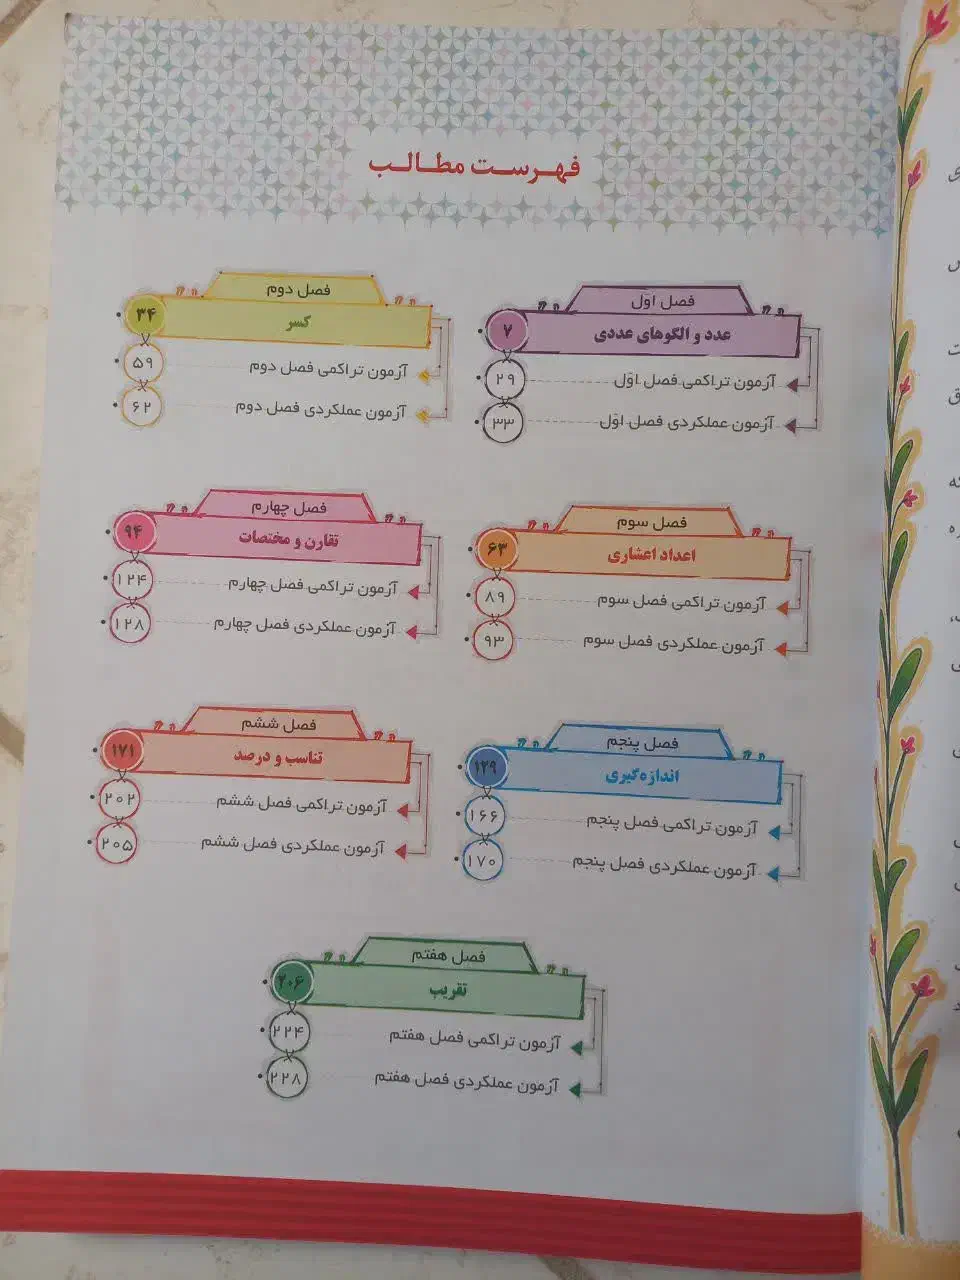 فهرست مطالب
فصل اول
عدد و الگوهای عددی ۷
آزمون تراکمی فصل اوّل ۲۹
آزمون عملکردی فصل اوّل ۳۳
فصل دوم
کسر ۳۴
آزمون تراکمی فصل دوم ۵۹
آزمون عملکردی فصل دوم ۶۲
فصل سوم
اعداد اعشاری ۶۳
آزمون تراکمی فصل سوم ۸۹
آزمون عملکردی فصل سوم ۹۳
فصل چهارم
تقارن و مختصات ۹۴
آزمون تراکمی فصل چهارم ۱۲۴
آزمون عملکردی فصل چهارم ۱۲۸
فصل پنجم
اندازه‌گیری ۱۲۹
آزمون تراکمی فصل پنجم ۱۶۶
آزمون عملکردی فصل پنجم ۱۷۰
فصل ششم
تناسب و درصد ۱۷۱
آزمون تراکمی فصل ششم ۲۰۲
آزمون عملکردی فصل ششم ۲۰۵
فصل هفتم
تقریب ۲۰۶
آزمون تراکمی فصل هفتم ۲۲۴
آزمون عملکردی فصل هفتم ۲۲۸